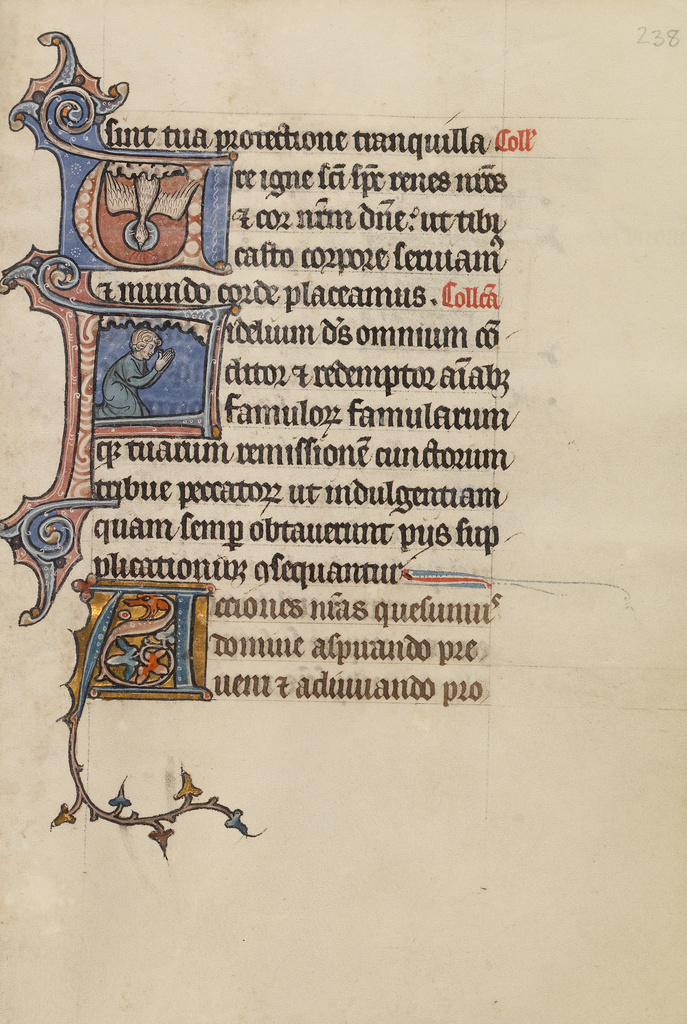 238
sint tua protectione tranquilla Coll'
Ure igne sc̄i sp̄c renes nr̄os
⁊ cor nr̄m dn̄e: ut tibi
casto corpore seruiam'
⁊ mundo corde placeamus. Collcā
Fidelium ds̄ omnium cō
ditor ⁊ redemptor aīabꝫ
famuloꝝ famularum
qꝫ tuarum remissionē cunctorum
tribue peccatoꝝ ut indulgentiam
quam semꝑ obtauerunt pijs sup
plicationibꝫ ꝯsequantur
Acciones nr̄as quesumus
domine aspirando pre
ueni ⁊ adiuuando pro